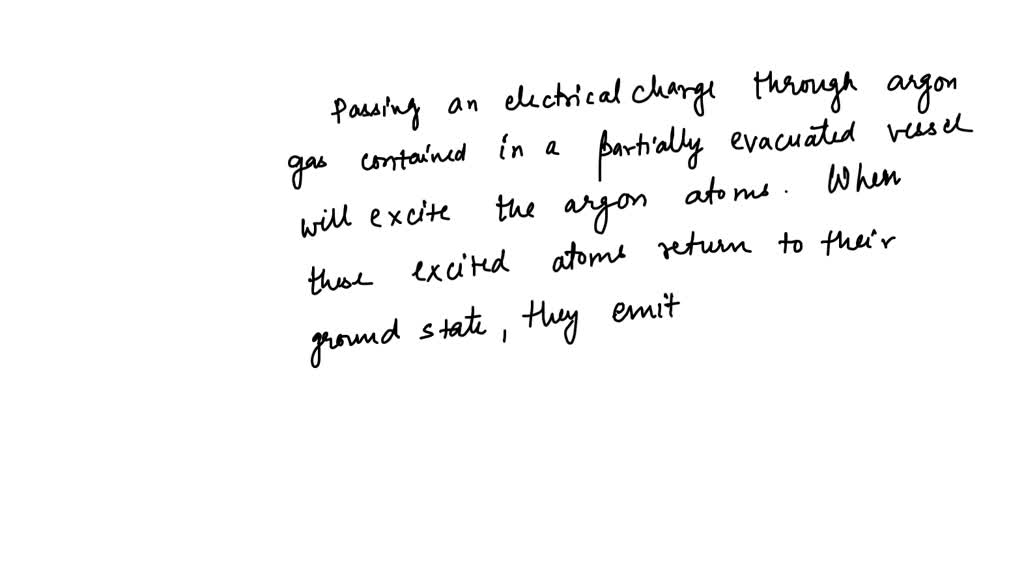 Passing an electrical charge through argon
gas contained in a partially evacuated vessel
will excite the argon atoms. When
these excited atoms return to their
ground state, they emit